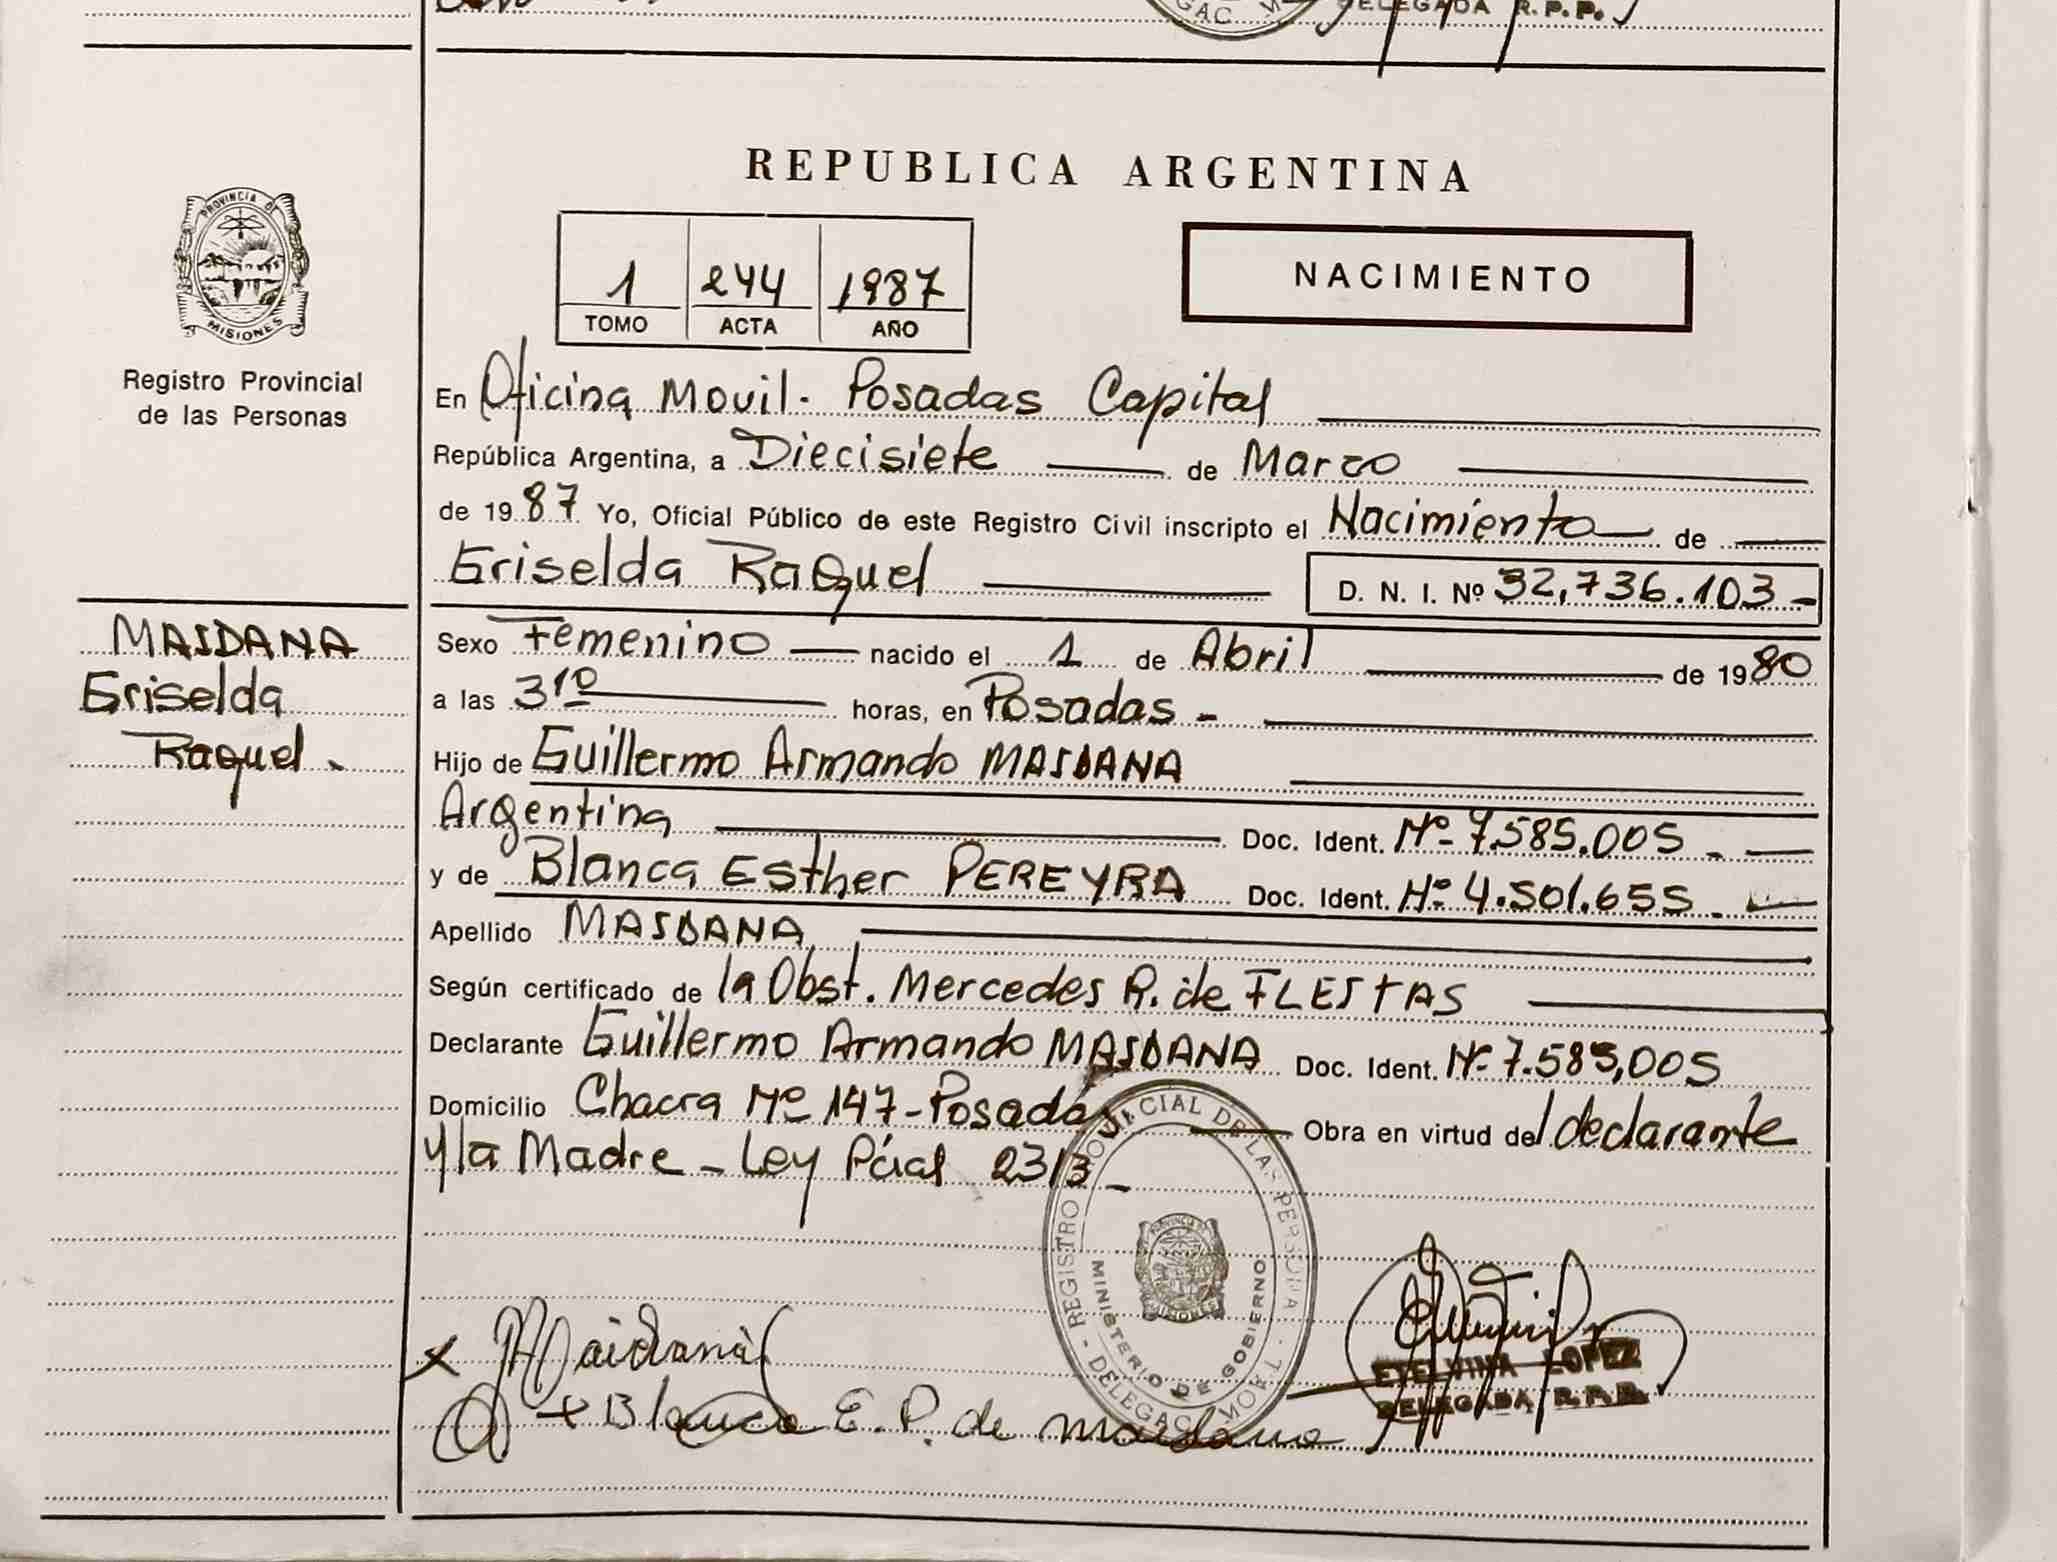 DELEGADA R.P.P.
REPUBLICA ARGENTINA
PROVINCIA DE
MISIONES
Registro Provincial
de las Personas
1 244 1987
TOMO ACTA AÑO
NACIMIENTO
En Oficina Movil. Posadas Capital
República Argentina, a Diecisiete de Marzo
de 1987 Yo, Oficial Público de este Registro Civil inscripto el Nacimiento de
Griselda Raquel D. N. I. Nº 32,736.103 -
MAIDANA
Griselda
Raquel.
Sexo Femenino nacido el 1 de Abril de 1980
a las 3¹⁰ horas, en Posadas -
Hijo de Guillermo Armando MAIDANA
Argentina Doc. Ident. Nº 7.585.005 -
y de Blanca Esther PEREYRA Doc. Ident. Nº 4.501.655 -
Apellido MAIDANA
Según certificado de la Obst. Mercedes R. de FLEITAS
Declarante Guillermo Armando MAIDANA Doc. Ident. Nº 7.585,005
Domicilio Chacra Nº 147-Posadas Obra en virtud del declarante
y la Madre - Ley Pcial 2313 -
REGISTRO PROVINCIAL DE LAS PERSONAS
MINISTERIO DE GOBIERNO
x Maidana
+ Blanca E. P. de Maidana
ETELVINA LOPEZ
DELEGADA R.P.P.